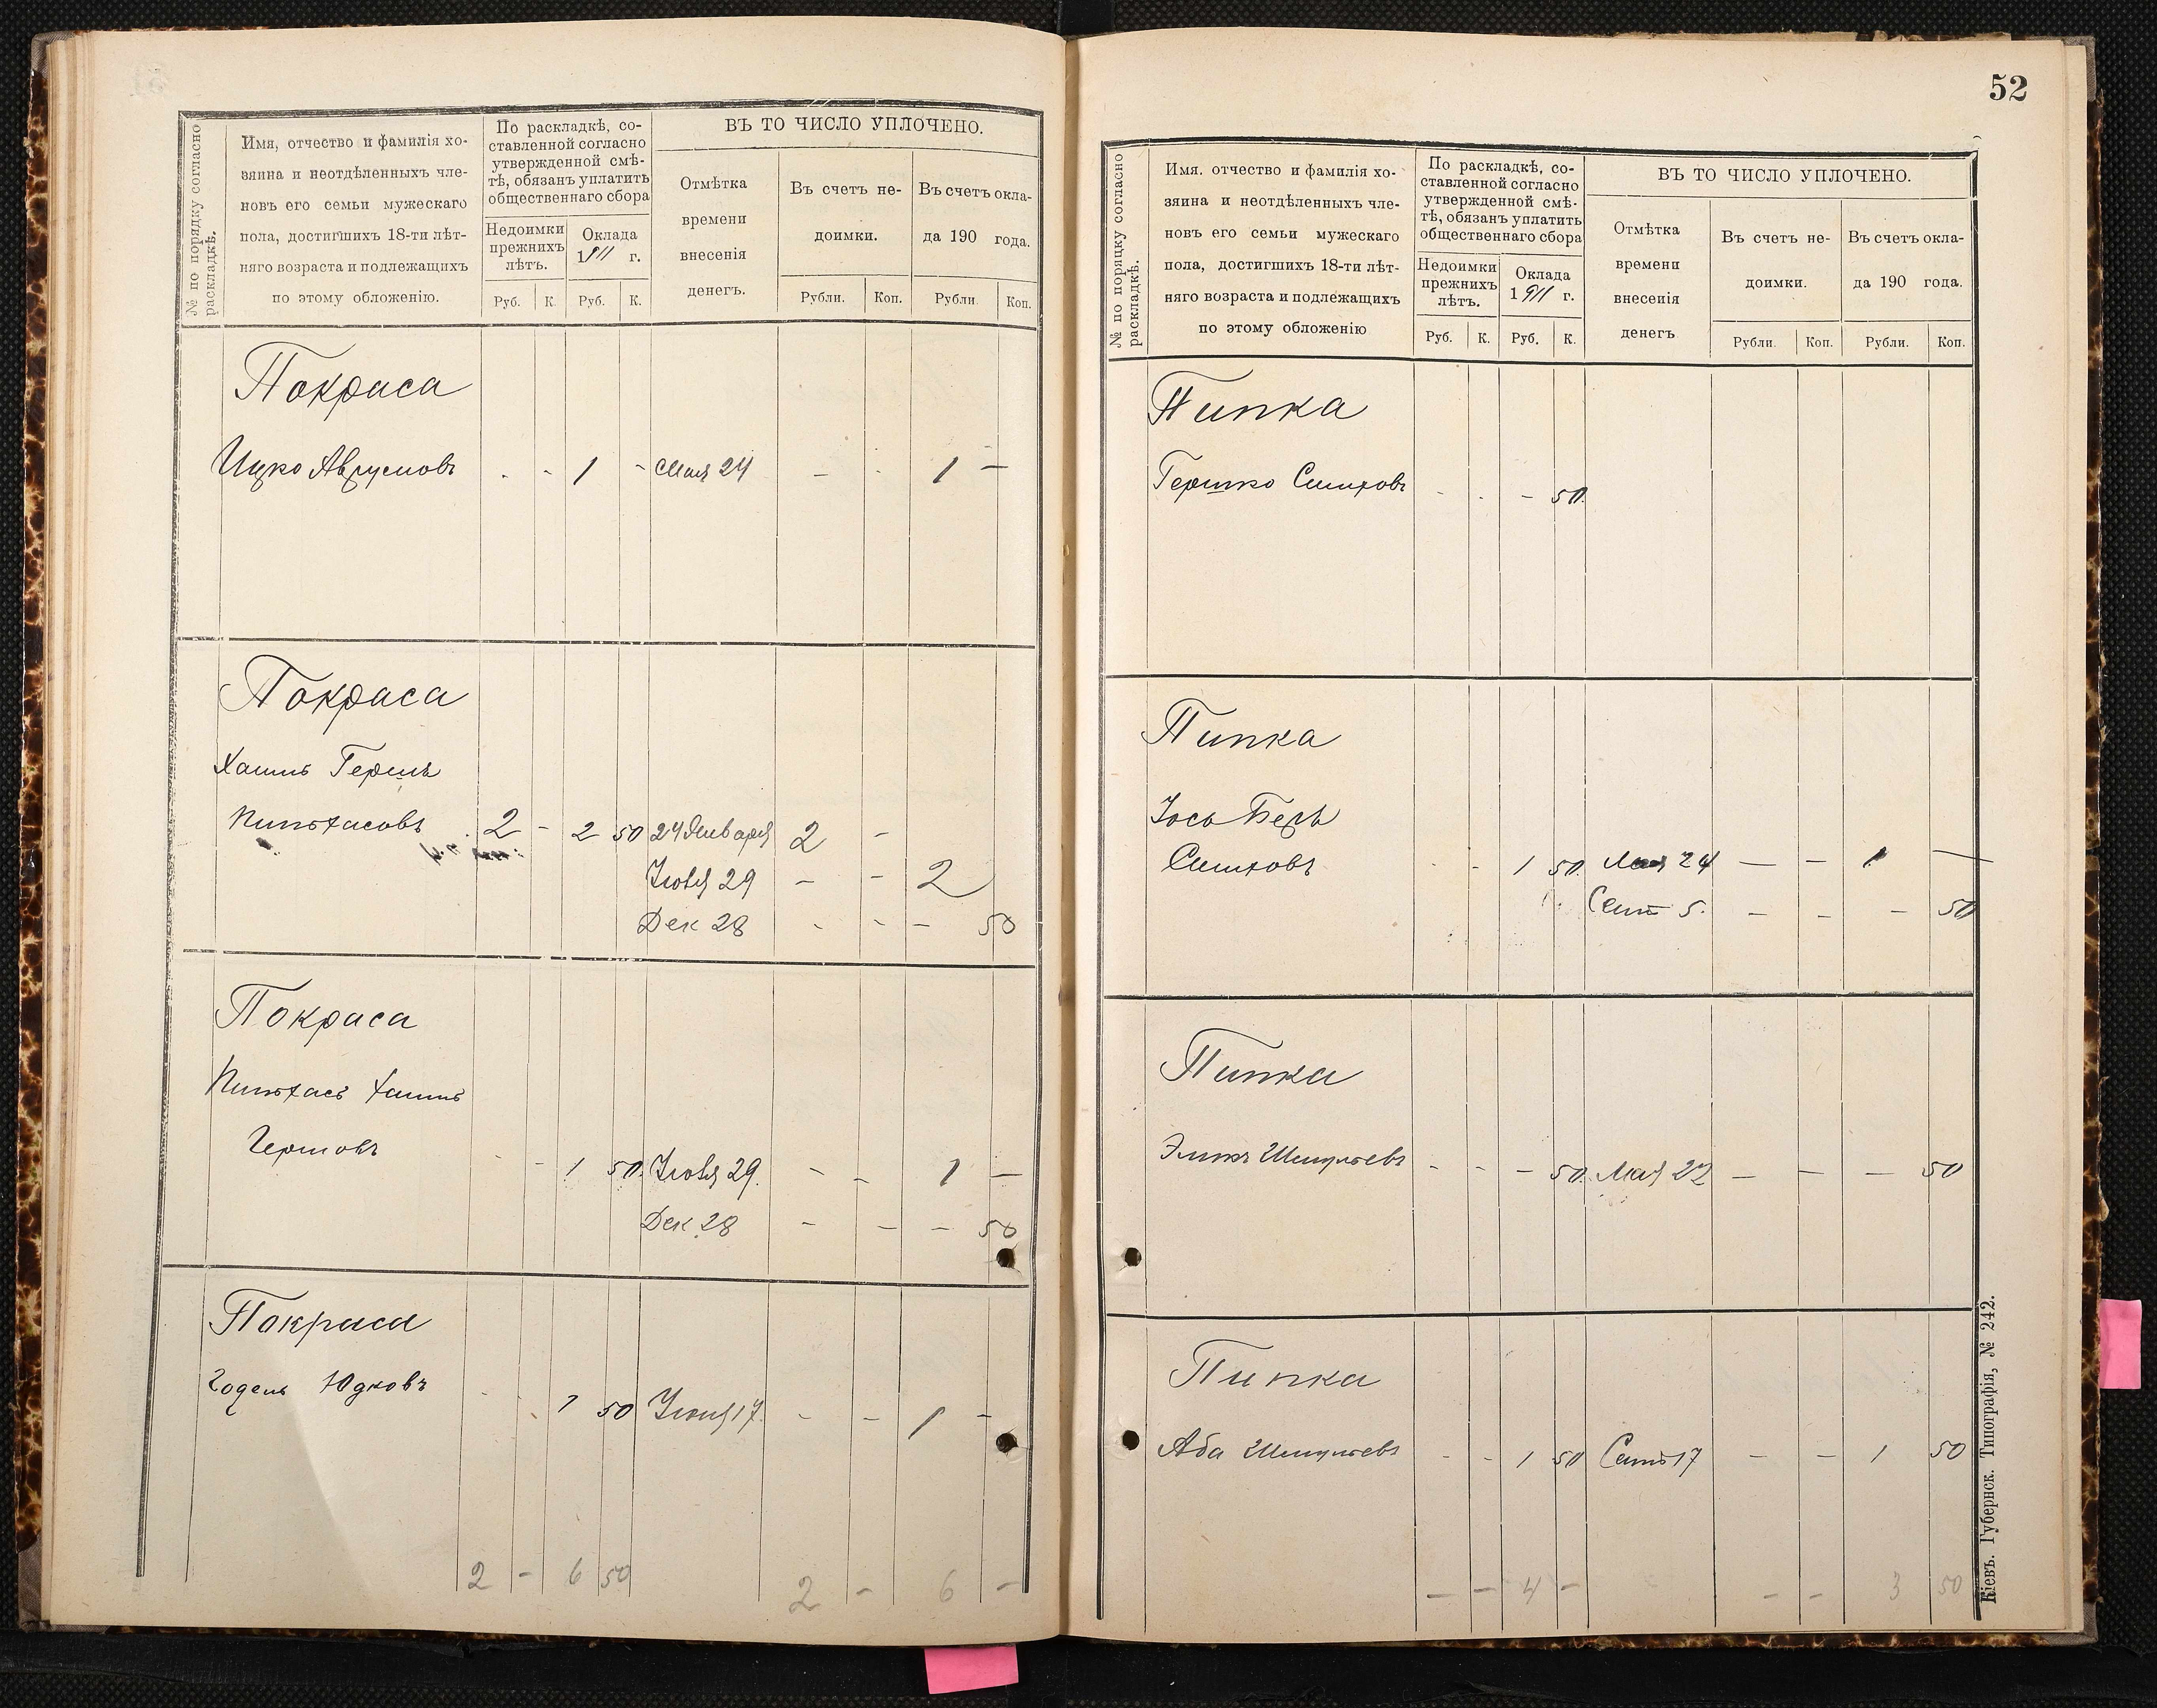 № по порядку согласно раскладкѣ.
Имя, отчество и фамилія хо-
зяина и неотдѣленныхъ чле-
новъ его семьи мужескаго
пола, достигшихъ 18-ти лѣт-
няго возраста и подлежащихъ
по этому обложенію.
По раскладкѣ, со-
ставленной согласно
утвержденной смѣ-
тѣ, обязанъ уплатить
общественнаго сбора
Недоимки
прежнихъ
лѣтъ.
Оклада
1911 г.
Руб. К. Руб. К.
ВЪ ТО ЧИСЛО УПЛОЧЕНО.
Отмѣтка
времени
внесенія
денегъ.
Въ счетъ не-
доимки.
Въ счетъ окла-
да 190 года.
Рубли. Коп. Рубли. Коп.
Покраса
Ицко Аврумовъ - - 1 - Мая 24 - - 1 -
Покраса
Хаимъ Гершъ
Пинхасовъ 2 - 2 50 24 Января 2 -
Іюня 29 - - 2
Дек 28 - - - 50
Покраса
Пинхасъ Хаимъ
Гершовъ - - 1 50 Іюня 29. - - 1 -
Дек 28 - - - 50
Покраса
Годель Юдковъ - - 1 50 Іюня 17. - - 1 -
2 - 6 50 2 - 6 -
52
№ по порядку согласно раскладкѣ.
Имя. отчество и фамилія хо-
зяина и неотдѣленныхъ чле-
новъ его семьи мужескаго
пола, достигшихъ 18-ти лѣт-
няго возраста и подлежащихъ
по этому обложенію
По раскладкѣ, со-
ставленной согласно
утвержденной смѣ-
тѣ, обязанъ уплатить
общественнаго сбора
Недоимки
прежнихъ
лѣтъ.
Оклада
1911 г.
Руб. К. Руб. К.
ВЪ ТО ЧИСЛО УПЛОЧЕНО.
Отмѣтка
времени
внесенія
денегъ
Въ счетъ не-
доимки.
Въ счетъ окла-
да 190 года.
Рубли. Коп. Рубли. Коп.
Пипка
Гершко Симховъ - - - 50.
Пипка
Іось Беръ
Симховъ - - 1 50. Мая 24 - - 1 -
Сент 5. - - - 50
Пипка
Эликъ Шмулевъ - - - 50. Мая 22 - - - 50
Пипка
Аба Шмулевъ - - 1 50 Сент 17 - - 1 50
- - 4 - - - 3 50
Кіевъ. Губернск. Типографія, № 242.